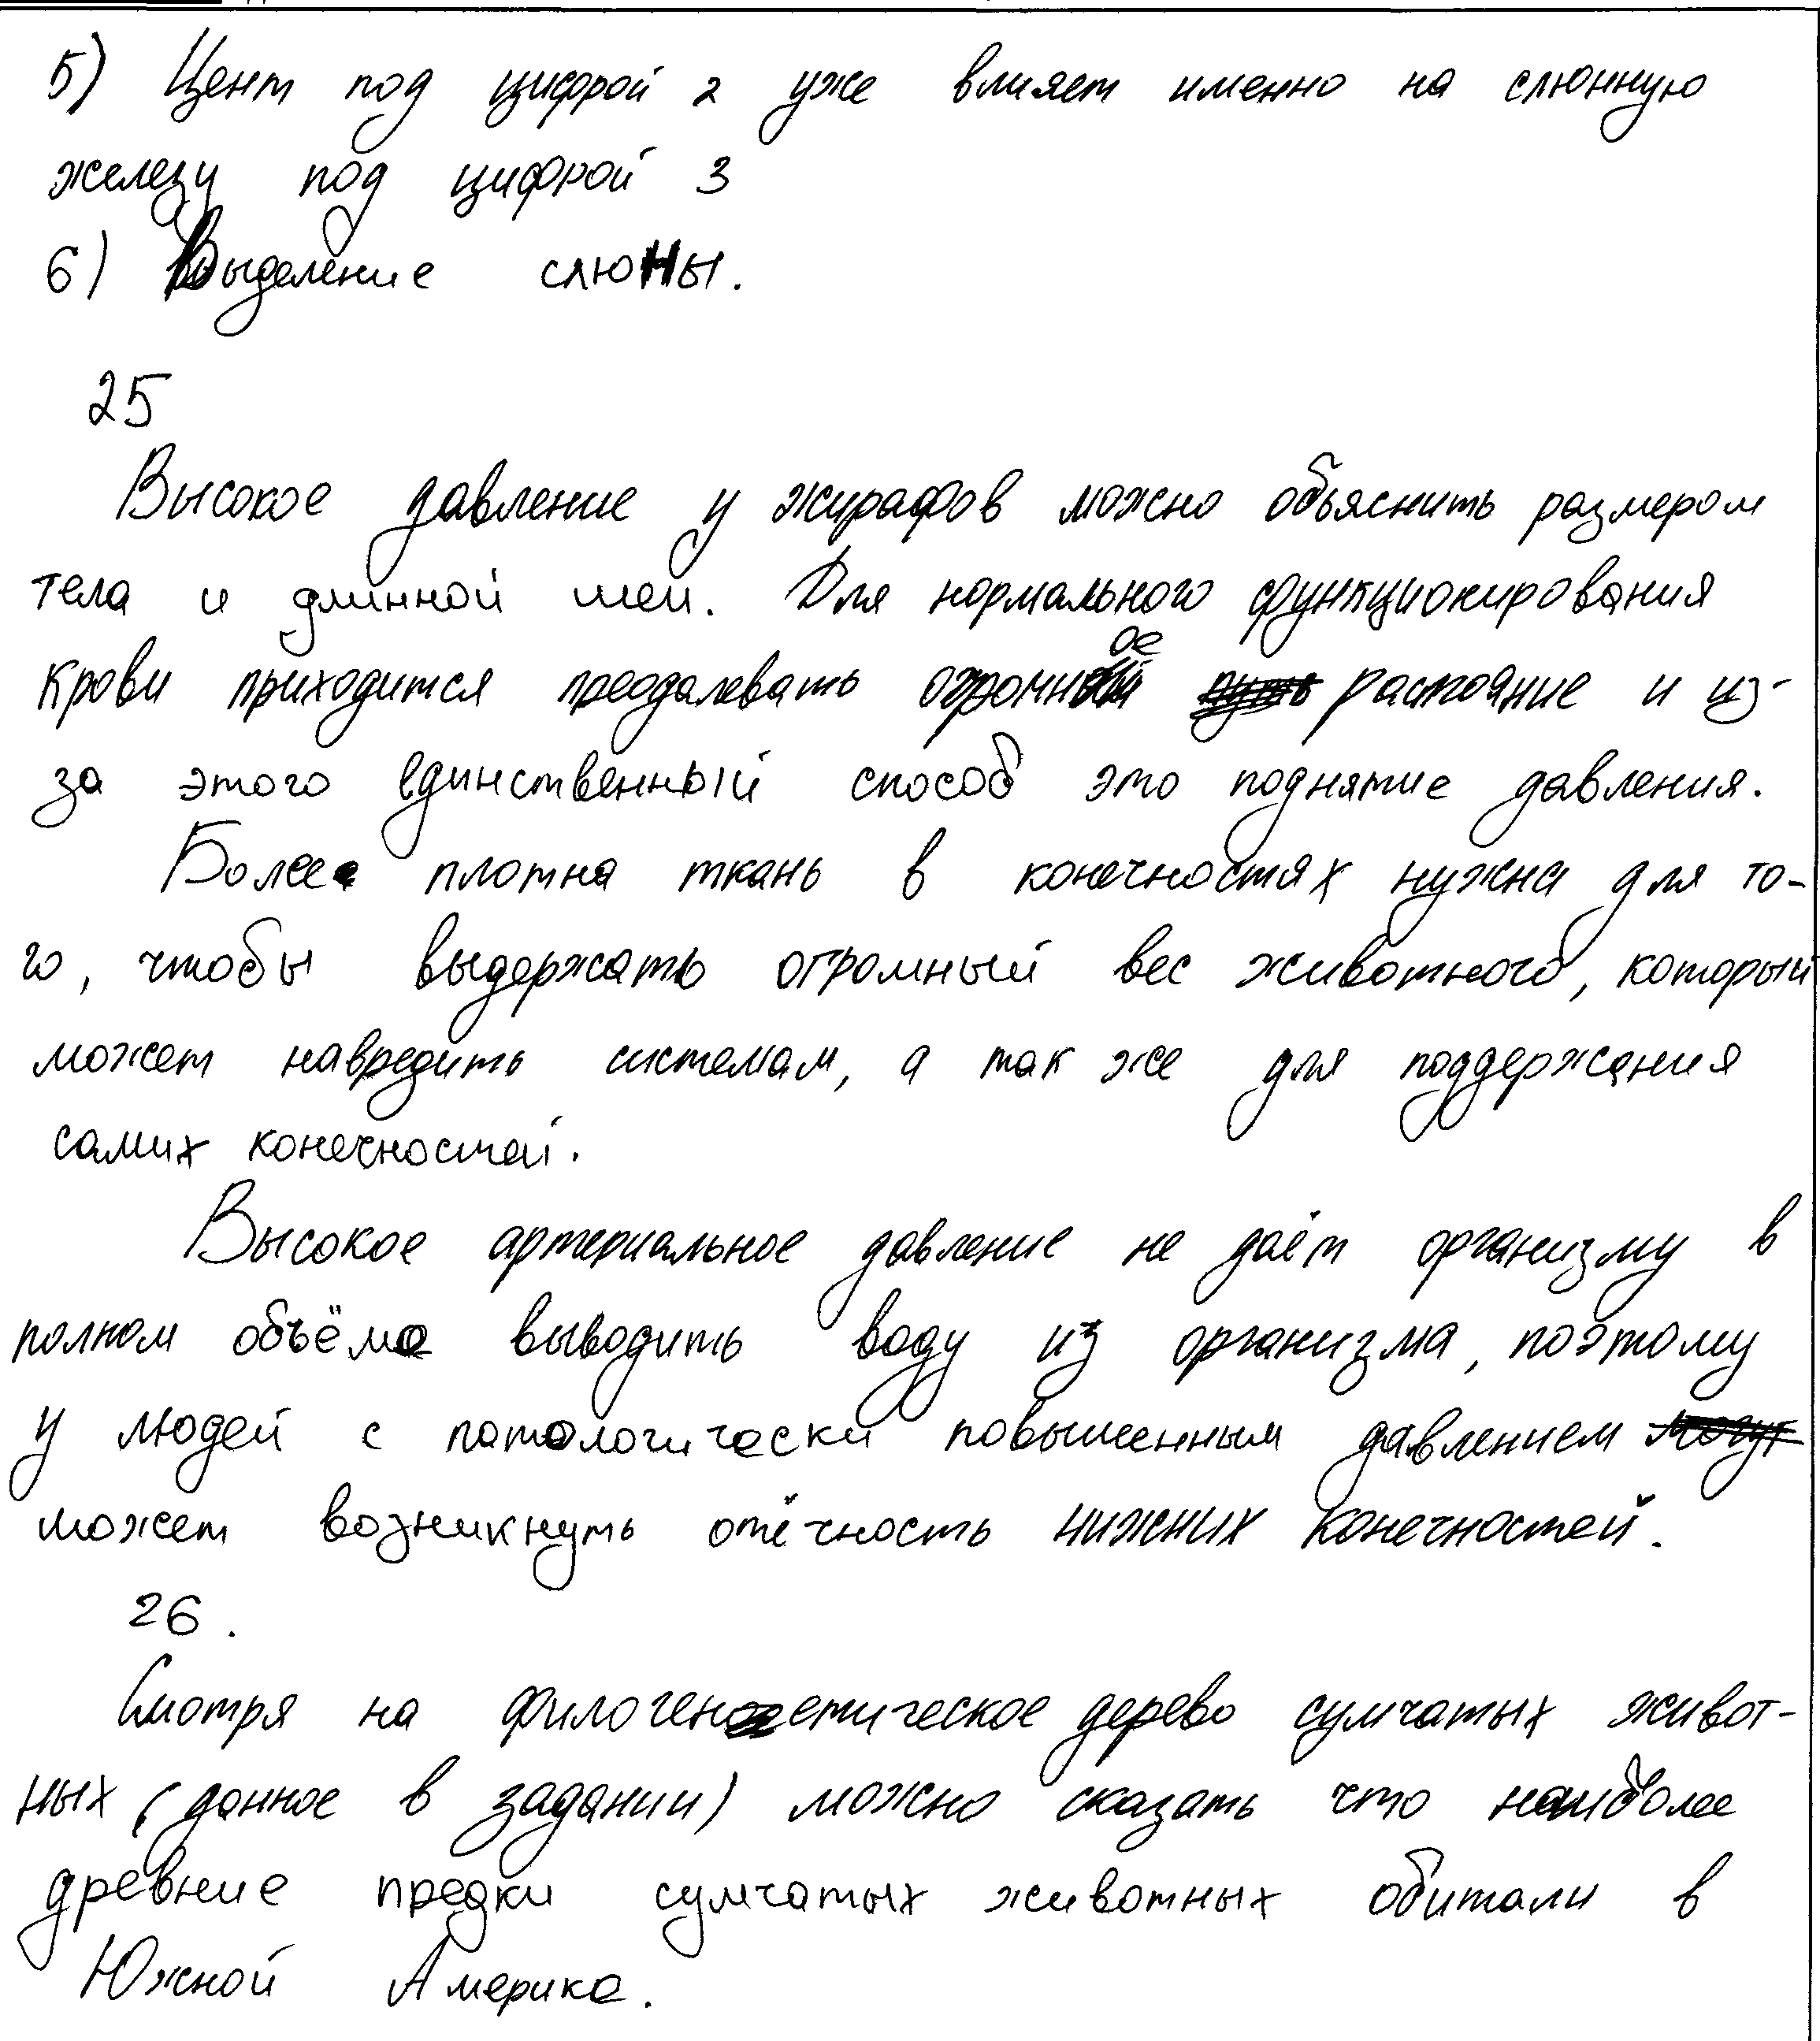 5) Цент под цифрой 2 уже влияет именно на слюнную
железу под цифрой 3
6) Выделение слюны.
25
Высокое давление у жирафов можно объяснить размером
тела и длинной шеи. Для нормального функционирования
крови приходится преодалевать огромное растояние и из-
за этого единственный способ это поднятие давления.
Более плотна ткань в конечностях нужна для то-
го, чтобы выдержать огромный вес животного, который
может навредить системам, а так же для поддержания
самих конечностей.
Высокое артериальное давление не даёт организму в
полном объёме выводить воду из организма, поэтому
у людей с патологически повышенным давлением
может возникнуть отёчность нижних конечностей.
26.
Смотря на филогенетическое дерево сумчатых живот-
ных (данное в задании) можно сказать что наиболее
древние предки сумчатых животных обитали в
Южной Америке.